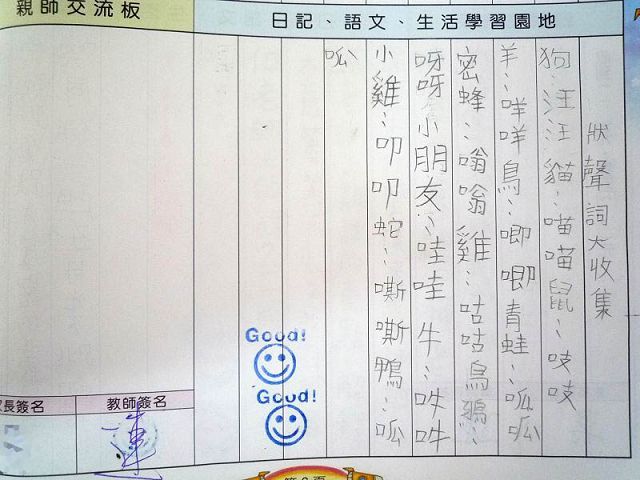 親師交流板
日記、語文、生活學習園地
狀聲詞大收集
狗：汪汪貓：喵喵鼠：吱吱
羊：咩咩鳥：唧唧青蛙：呱呱
密蜂：嗡嗡雞：咕咕烏鴉：
呀呀小朋友：哇哇牛：吽吽
小雞：叩叩蛇：嘶嘶鴨：呱
呱
Good!
Good!
長簽名
教師簽名